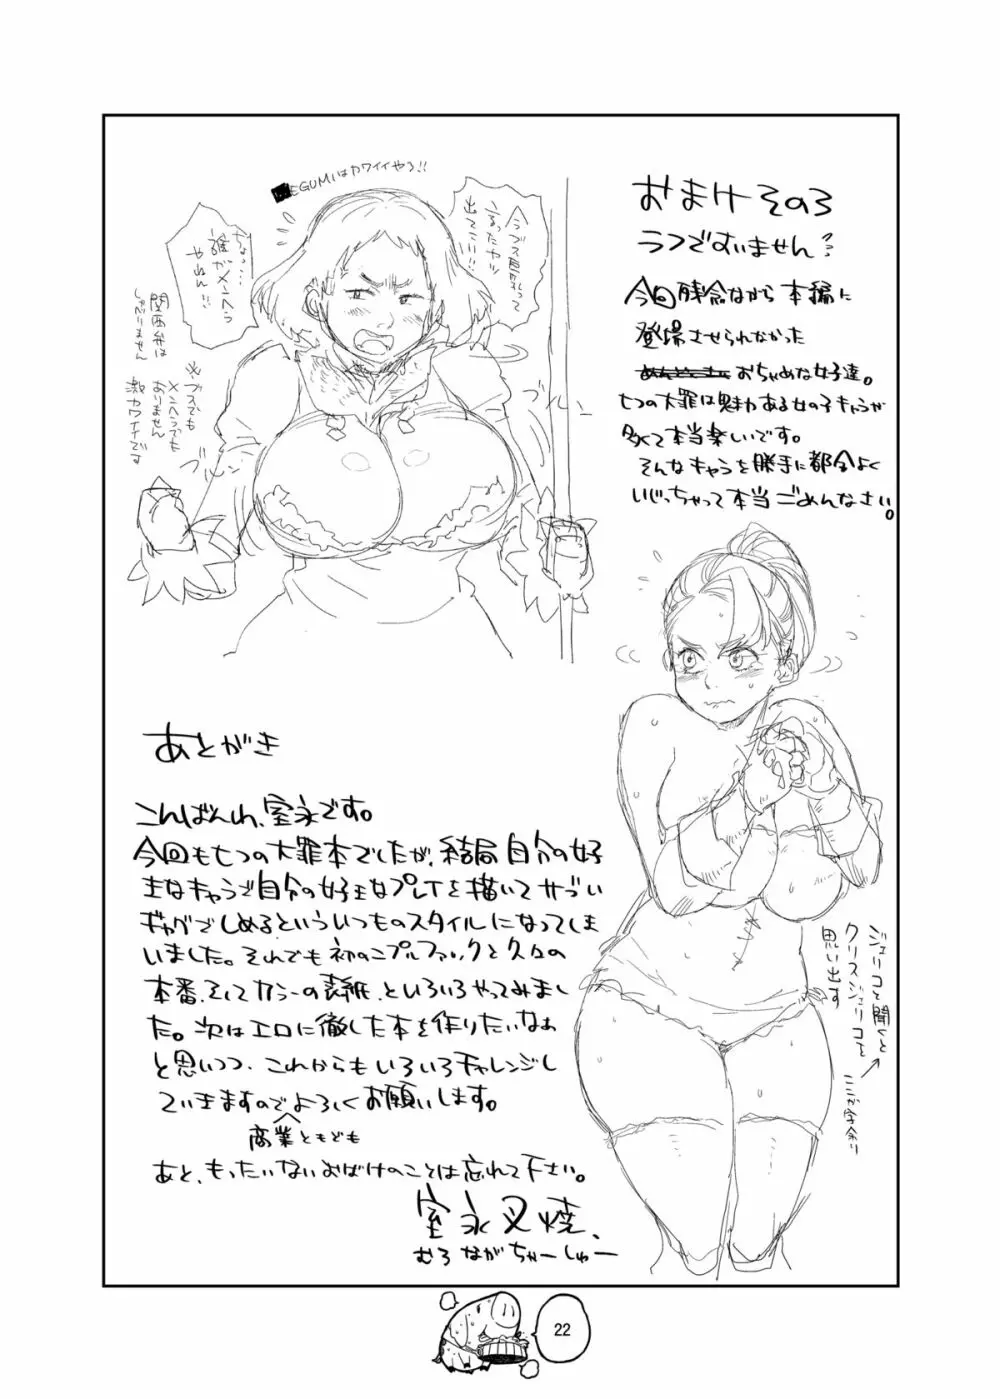 おまけその3
ラフですいません??
今回残念ながら本編に
登場させられなかった
おちゃめな女子達。
七つの大罪は魅力ある女の子キャラが
多くて本当楽しいです。
そんなキャラを勝手に都合よく
いじっちゃって本当ごめんなさい。
EGUMIはカワイイやろ!!
今ブス巨乳って
言ったヤツ
出てこい!!
ちょ…
誰がメンヘラ
やねん!!
関西弁は
しゃべりません
※ブスでも
メンヘラでも
ありません
激カワイイです
あとがき
こんばんわ、室永です。
今回も七つの大罪本でしたが、結局自分の好
きなキャラで自分の好きなプレイを描いてサブい
ギャグでしめるといういつものスタイルになってしま
いました。それでも初のニプルファックと久々の
本番、そしてカラーの表紙、といろいろやってみまし
た。次はエロに徹した本を作りたいなぁ
と思いつつ、これからもいろいろチャレンジし
ていきますのでよろしくお願いします。
商業ともども
あと、もったいないおばけのことは忘れて下さい。
室永叉焼、
むろながちゃーしゅー
ジェリコと聞くと
クリスジェリコを
思い出す
ここ字余り
22